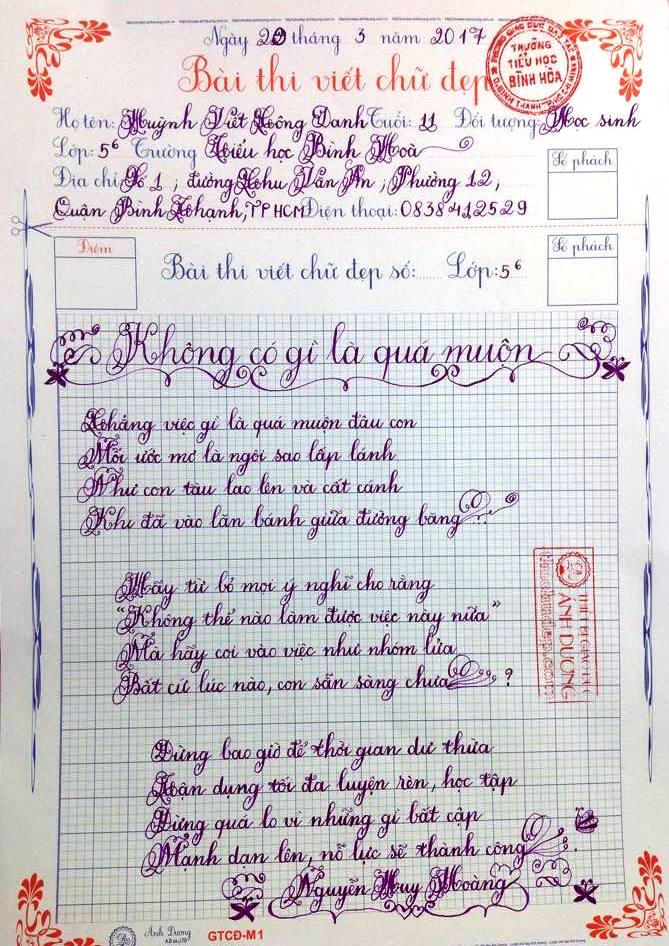 Ngày 20 tháng 3 năm 2017
Bài thi viết chữ đẹp
TRƯỜNG
TIỂU HỌC
BÌNH HÒA
Họ tên: Huỳnh Viết Hồng Danh Tuổi: 11 Đối tượng: Học sinh
Lớp: 5⁶ Trường Tiểu học Bình Hoà
Địa chỉ: Số 1, đường Chu Văn An, Phường 12,
Quận Bình Thạnh, TP HCM Điện thoại: 0838412529
Số phách
Điểm
Bài thi viết chữ đẹp số: ...... Lớp: 5⁶
Số phách
Không có gì là quá muộn
Chẳng việc gì là quá muộn đâu con
Mỗi ước mơ là ngôi sao lấp lánh
Như con tàu lao lên và cất cánh
Khi đã vào lăn bánh giữa đường băng...
Hãy từ bỏ mọi ý nghĩ cho rằng
"Không thể nào làm được việc này nữa"
Mà hãy coi vào việc như nhóm lửa
Bất cứ lúc nào, con sẵn sàng chưa ?
Đừng bao giờ để thời gian dư thừa
Tận dụng tối đa luyện rèn, học tập
Đừng quá lo vì những gì bất cập
Mạnh dạn lên, nỗ lực sẽ thành công.
Nguyễn Huy Hoàng
ÁNH DƯƠNG
Ánh Dương
GTCĐ-M1